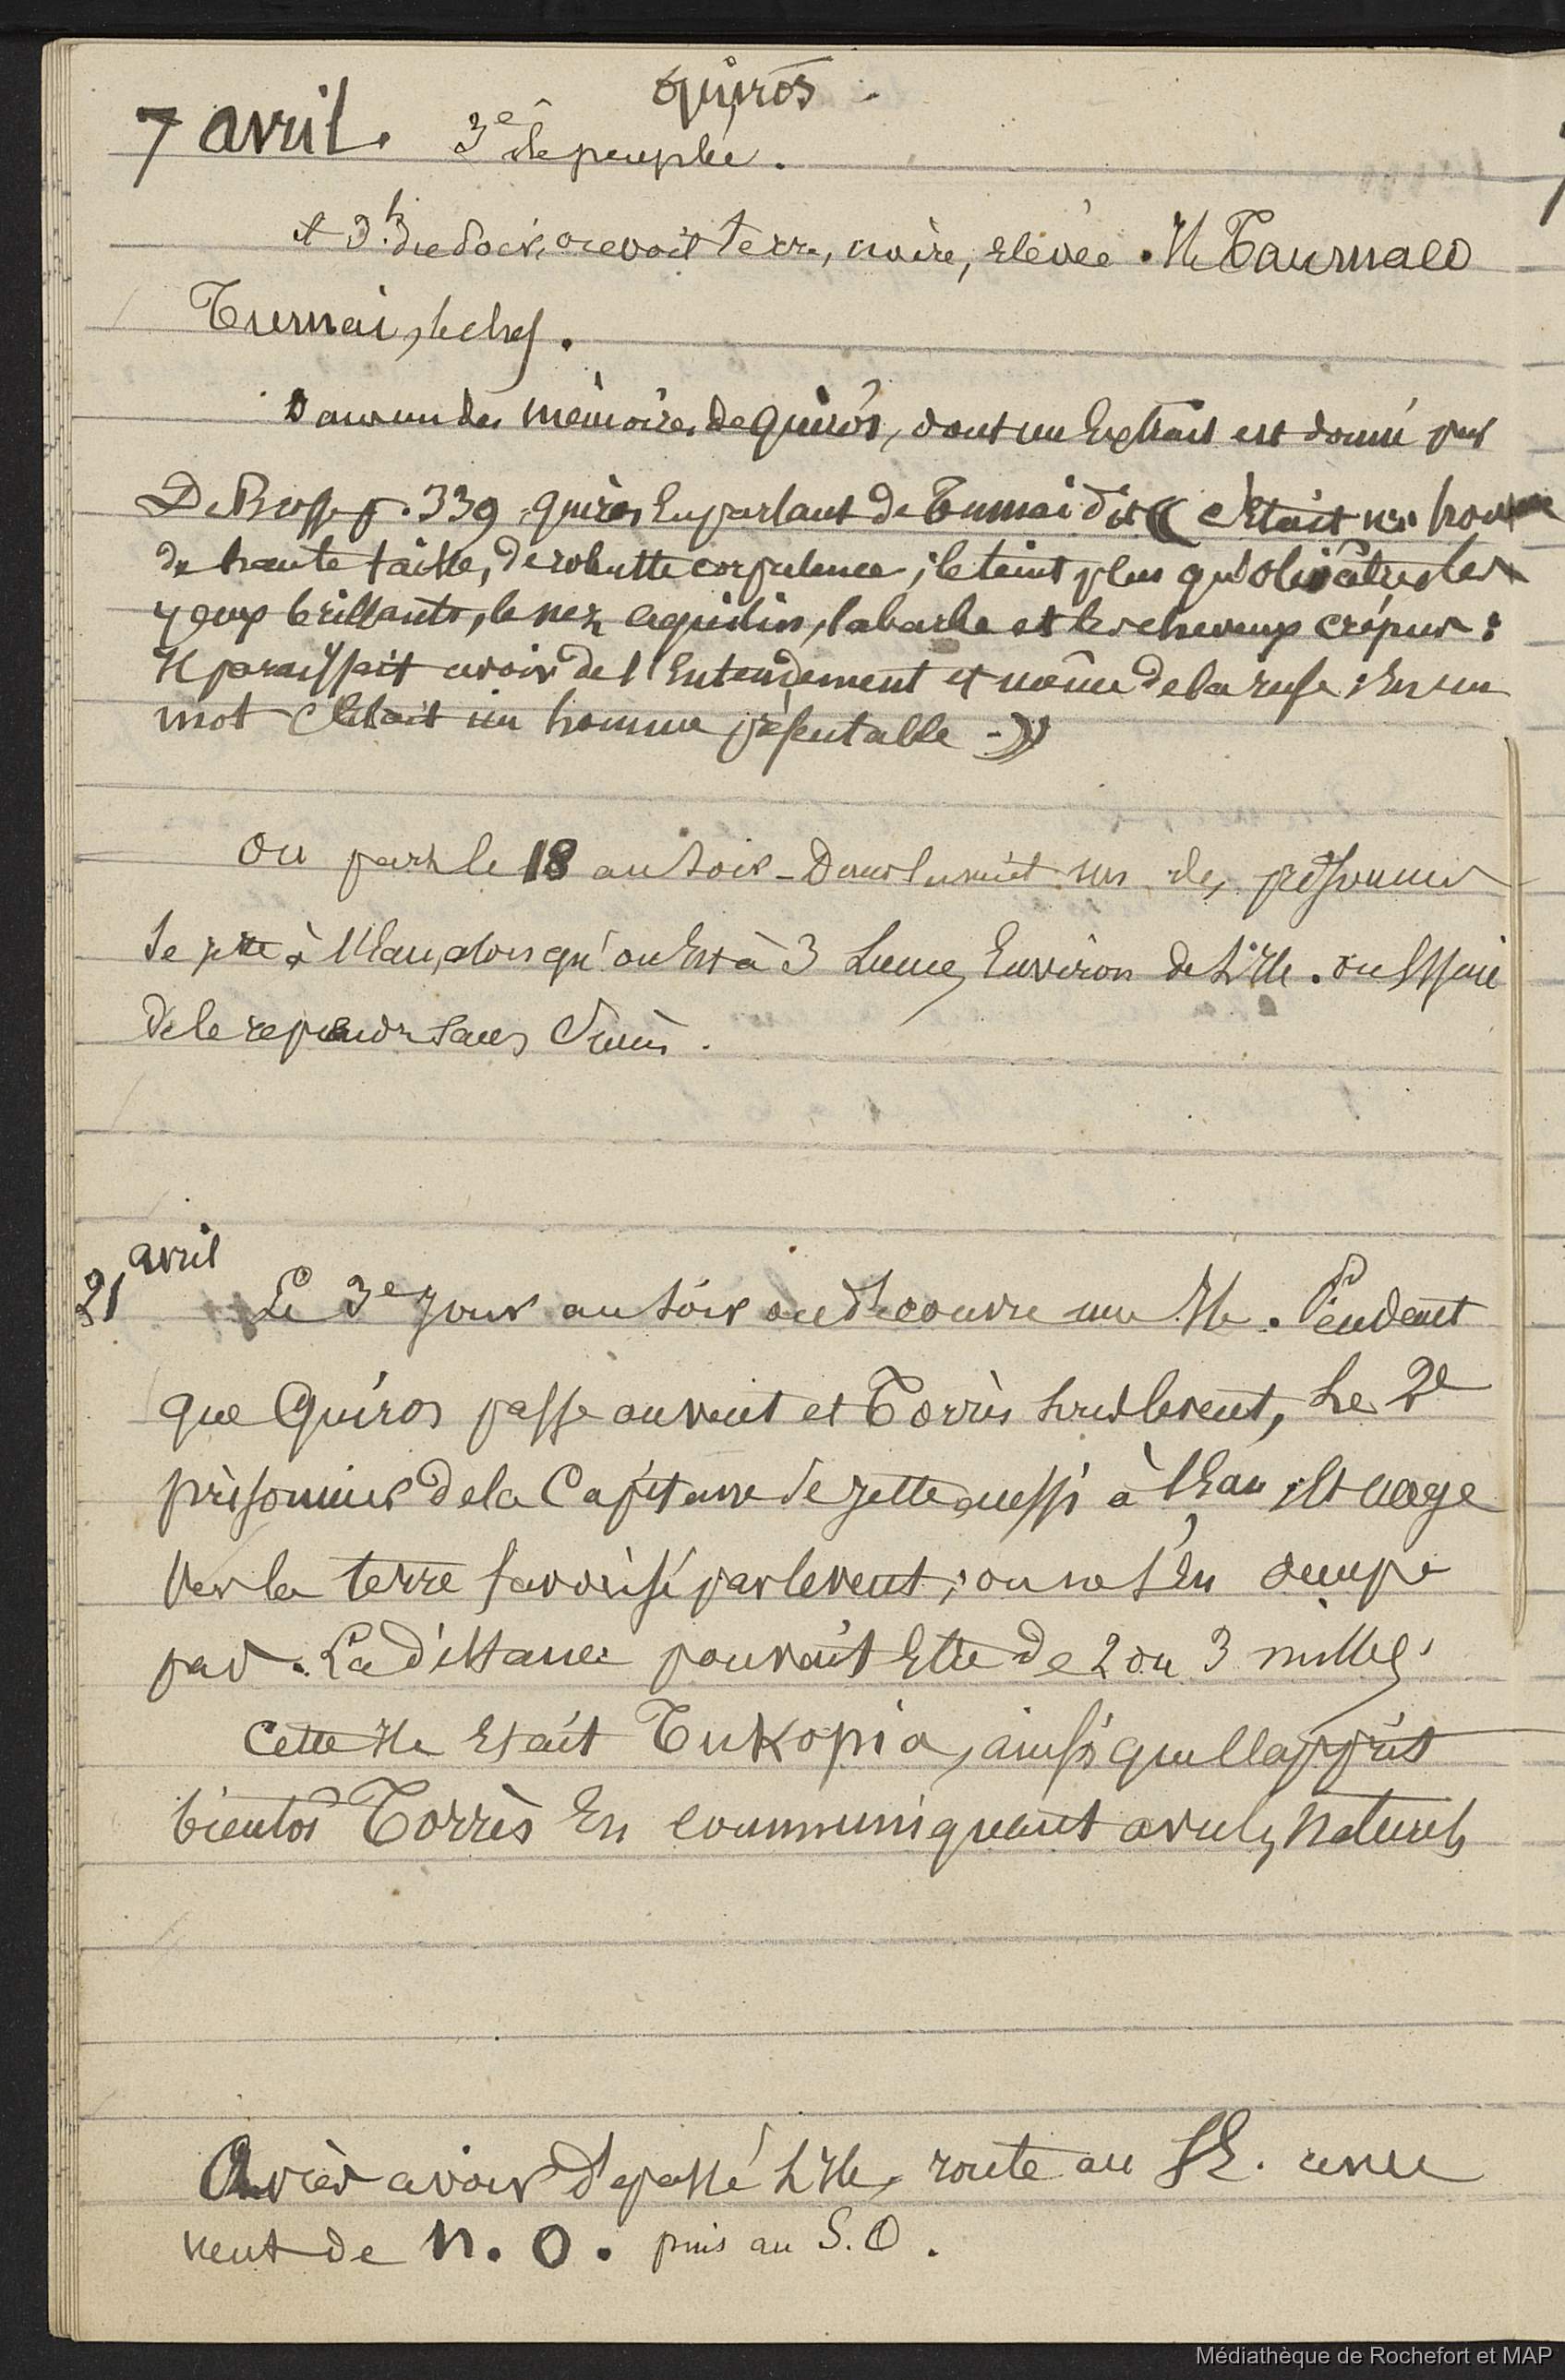 Quiros
7 avril. 3e île peuplée.
A 3h du soir, on voit terre, noire, élevée. Ile Taumaco
Tumai, le chef.
Dans un des mémoires de Quiros, dont un Extrait est donné par
De Brosses p. 339, Quiros En parlant de Tumai dit (( C'Etait un homme
de haute taille, de robustte corpulence, le teint plus qu'olivâtre les
yeux brillants, le nez aquilin, la barbe et les cheveux crépus :
Il paraissait avoir de l'Entendement et même de la ruse ; En un
mot C'Etait un homme présentable - ))
On part le 18 au soir - Dans la nuit un des prisonniers
se jette à l'Eau, alors qu'on Est à 3 Lieues Environ de L'Ile. on Essaie
de le reprendre sans Succès.
21 avril
Le 3e jour au soir on découvre une Ile. Pendant
que Quiros passe au vent et Torrès sous le vent, Le 2e
prisonnier de la Capitane se jette aussi à l'Eau, Et nage
vers la terre favorisé par le vent ; on ne s'En occupe
pas. La distance pouvait Etre de 2 ou 3 milles
Cette Ile Etait Tukopia, ainsi que l'apprit
bientôt Torrès En communiquant avec les Naturels
Après avoir dépassé L'Ile, route au SE. avec
vent de N. O. puis au S. O.
Médiathèque de Rochefort et MAP